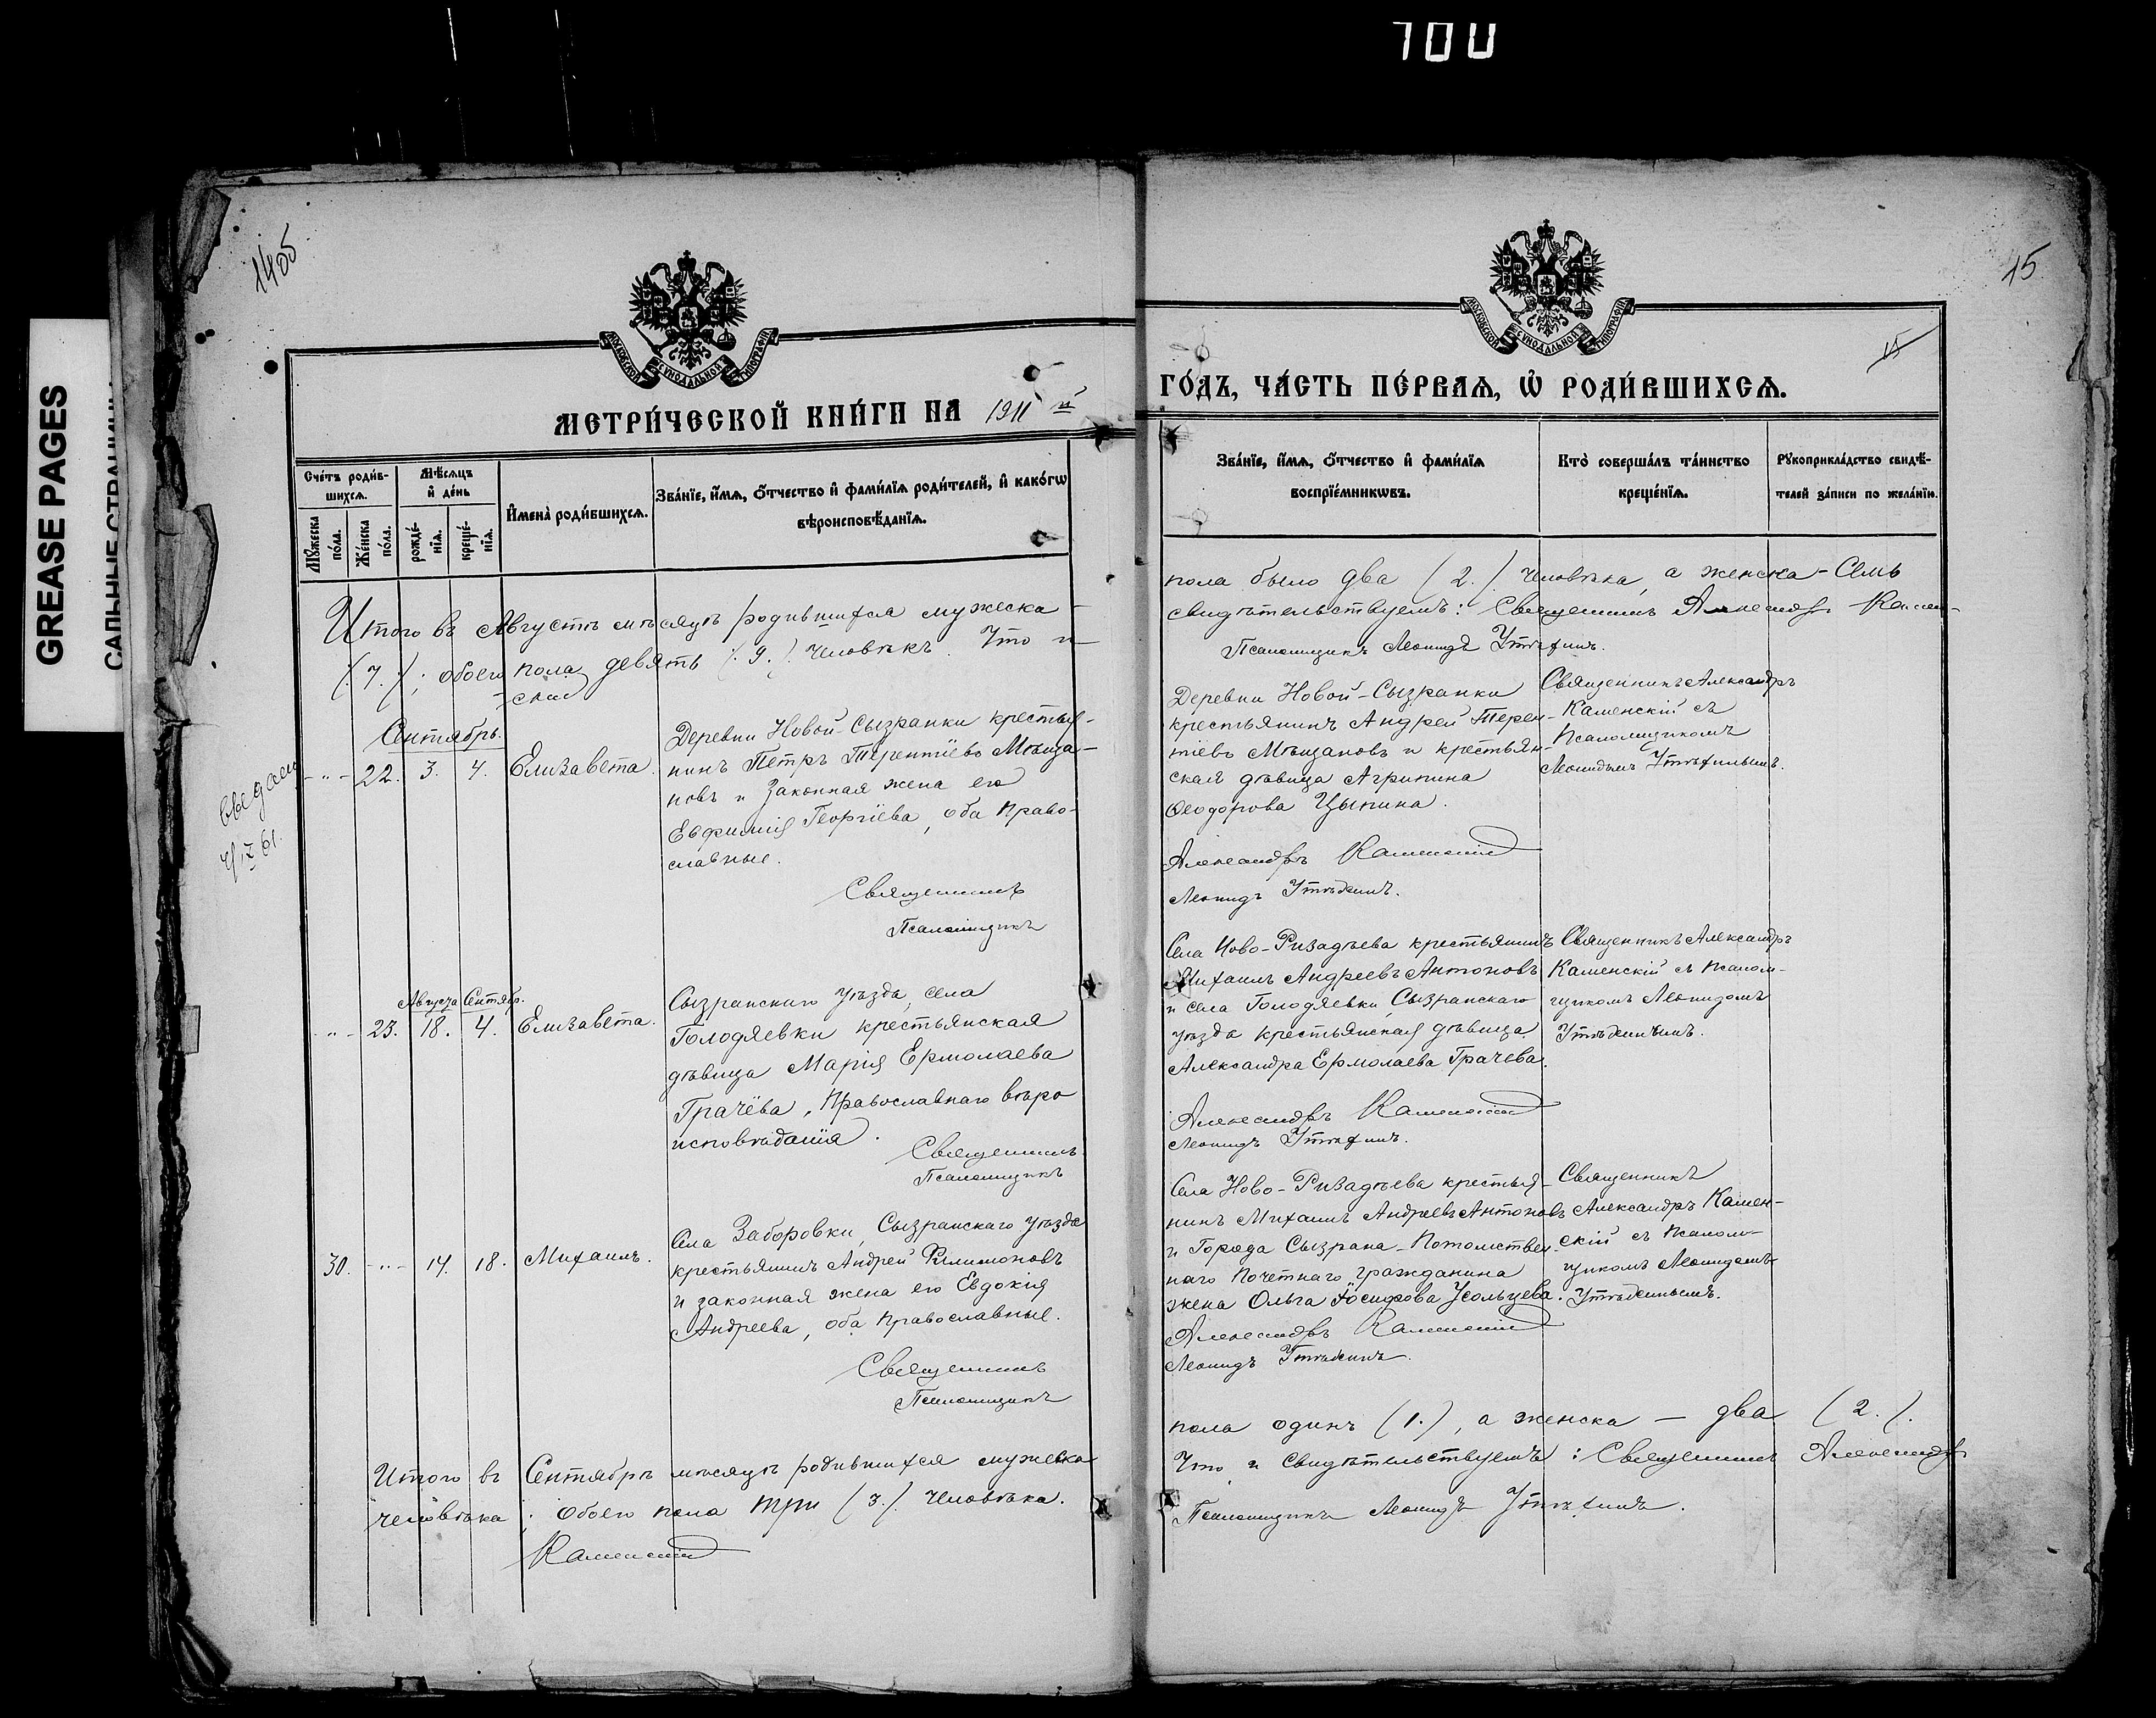 700
GREASE PAGES
1405
15
15
МОСКОВСКОЙ СѴНОДАЛЬНОЙ ТИПОГРАФІИ
МОСКОВСКОЙ СѴНОДАЛЬНОЙ ТИПОГРАФІИ
МЕТРИ́ЧЕСКОЙ КНИ́ГИ НА 1911 й
ГО́ДЪ, ЧА́СТЬ ПЕ́РВАѦ, Ѽ РОДИ́ВШИХСѦ.
Сче́тъ роди́в-
шихсѧ.
Мѣ́сѧцъ
и де́нь
Мꙋ́жеска
по́ла.
Же́нска
по́ла.
рожде́-
нїѧ.
креще́-
нїѧ.
И҆мена̀ роди́вшихсѧ.
Зва́нїе, и҆́мѧ, ѻ҆́тчество и҆ фами́лїѧ роди́телей, и҆ како́гѡ
вѣроисповѣ́данїѧ.
Зва́нїе, и҆́мѧ, ѻ҆́тчество и҆ фами́лїѧ
воспрїе́мникѡвъ.
Кто̀ соверша́лъ та́инство
креще́нїѧ.
Рꙋкоприкла́дство свидѣ́-
телей за́писи по жела́нїю.
Итого въ Августѣ мѣсяцѣ родившихся мужеска
(7.); обоего пола девять (9.) человѣкъ. Что и
скій
пола было два (2.) человѣка, а женска - семь
свидѣтельствуемъ: Священникъ Александръ Камен-
Псаломщикъ Леонидъ Утѣхинъ.
Сентябрь.
- " - 22. 3. 4. Елизавета.
Деревни Новой-Сызранки крестья-
нинъ Петръ Терентіевъ Мѣща-
новъ и законная жена его
Евфимія Георгіева, оба право-
славные.
Священникъ
Псаломщикъ
Деревни Новой-Сызранки
крестьянинъ Андрей Терен-
тіевъ Мѣщановъ и крестьян-
ская дѣвица Агрипина
Ѳеодорова Цыпина.
Александръ Каменскій
Леонидъ Утѣхинъ.
Священникъ Александръ
Каменскій съ
Псаломщикомъ
Леонидомъ Утѣхинымъ.
Августа Сентябр.
- " - 23. 18. 4. Елизавета.
Сызранскаго уѣзда, села
Голодяевки крестьянская
дѣвица Марія Ермолаева
Грачёва, Православнаго вѣро
исповѣданія.
Священникъ
Псаломщикъ
Села Ново-Ризадѣева крестьянинъ
Михаилъ Андреевъ Антоновъ
и села Голодяевки, Сызранскаго
уѣзда крестьянская дѣвица
Александра Ермолаева Грачева.
Александръ Каменскій
Леонидъ Утѣхинъ.
Священникъ Александръ
Каменскій съ Псалом-
щикомъ Леонидомъ
Утѣхинымъ.
30. - " - 14. 18. Михаилъ.
Села Заборовки, Сызранскаго уѣзда
крестьянинъ Андрей Филимоновъ
и законная жена его Евдокія
Андреева, оба православные.
Священникъ
Псаломщикъ
Села Ново-Ризадѣева крестья-
нинъ Михаилъ Андреевъ Антоновъ
и Города Сызрана - Потомствен-
наго почетнаго гражданина
жена Ольга Іосифова Усольцева.
Александръ Каменскій
Леонидъ Утѣхинъ.
Священникъ
Александръ Камен-
скій съ Псалом-
щикомъ Леонидомъ
Утѣхинымъ.
Итого въ Сентябрѣ мѣсяцѣ родившихся мужеска
человѣка; обоего пола три (3.) человѣка.
Каменскій
пола одинъ (1.), а женска - два (2.).
Что и свидѣтельствуемъ: Священникъ Александръ
Псаломщикъ Леонидъ Утѣхинъ.